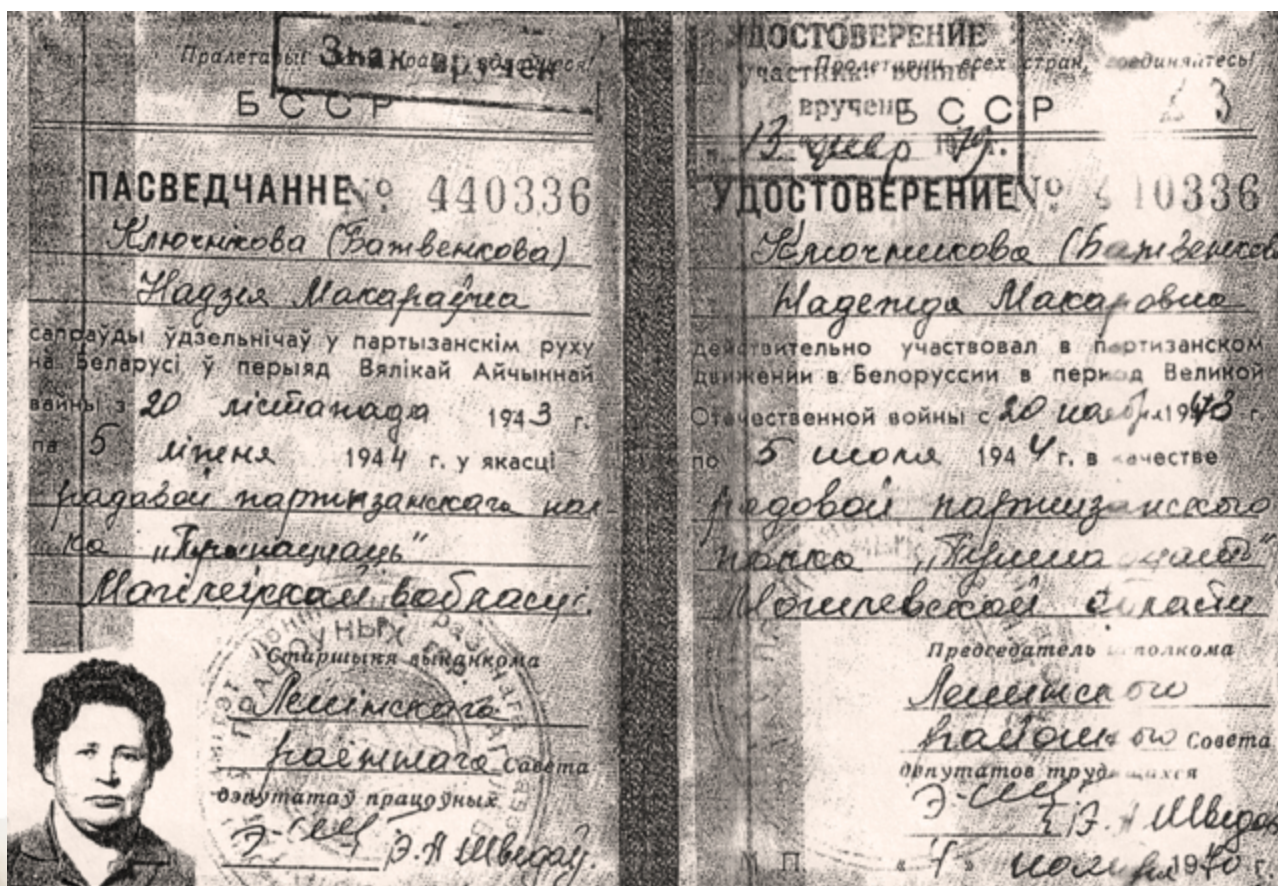 Пралетарыі краін, еднайцеся!
Знак вручен
БССР
ПАСВЕДЧАННЕ № 440336
Ключнікова (Батвенкова)
Надзея Макараўна
сапраўды ўдзельнічаў у партызанскім руху
на Беларусі ў перыяд Вялікай Айчыннай
вайны з 20 лістапада 1943 г.
па 5 ліпеня 1944 г. у якасці
радавой партызанскага пал-
ка
Магілеўскай вобласці.
Старшыня выканкома
Ленінскага
раённага Савета
дэпутатаў працоўных
Э. Н. Шведаў.
УДОСТОВЕРЕНИЕ
участника войны
вручено
Пролетарии всех стран, соединяйтесь!
БССР
УДОСТОВЕРЕНИЕ № 410336
Ключникова (Батвенков
Надежда Макаровна
действительно участвовал в партизанском
движении в Белоруссии в период Великой
Отечественной войны с 20 ноября 1943 г.
по 5 июля 1944 г. в качестве
рядовой партизанского
полка
Могилевской области
Председатель исполкома
Ленинского
районного Совета
депутатов трудящихся
Э. Н. Шведов
М. П.